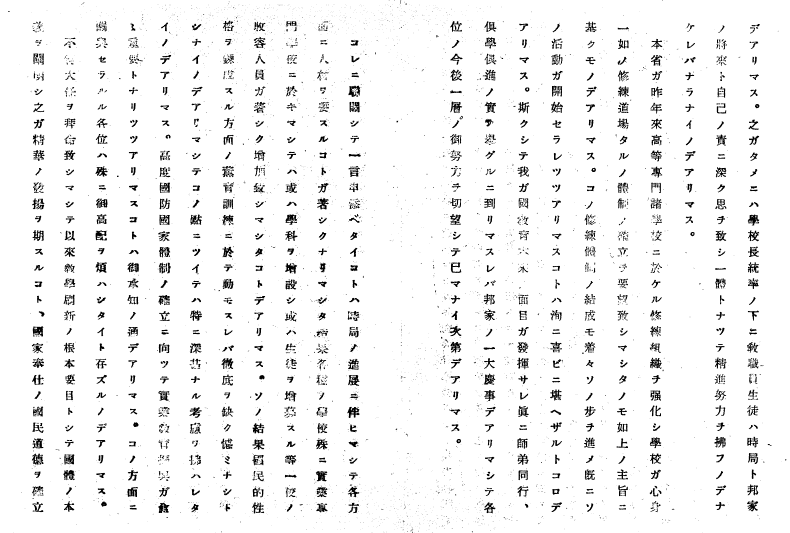 デアリマス。之ガタメニハ學校長統率ノ下ニ敎職員生徒ハ時局ト邦家
ノ將來ト自己ノ責ニ深ク思チ致シ一體トナツテ精進努力チ拂フノデナ
ケレバナラナイノデアリマス。
本省ガ昨年來高等專門諸學校ニ於ケル修練組織チ强化シ學校ガ心身
一如ノ修練道場タルノ體制ノ確立ヲ要望致シマシタノモ如上ノ主旨ニ
基クモノデアリマス。コノ修練機關ノ結成モ着々ソノ步チ進メ旣ニソ
ノ活動ガ開始セラレツツアリマスコトハ洵ニ喜ビニ堪ヘザルトコロデ
アリマス。斯クシテ我ガ國敎育本來ノ面目ガ發揮サレ眞ニ師弟同行、
俱學俱進ノ實ヲ擧グルニ到リマスレバ邦家ノ一大慶事デアリマシテ各
位ノ今後一層ノ御努力チ切望シテ已マナイ次第デアリマス。
コレニ關シテ一言申添ヘタイコトハ時局ノ進展ニ伴ヒマシテ各方
面ニ人材ヲ要スルコトガ著シクナリマシタ結果各種ノ學校殊ニ實業專
門學校ニ於キマシテハ或ハ學科ヲ增設シ或ハ生徒ヲ增募スル等一校ノ
收容人員ガ著シク增加致シマシタコトデアリマス。ソノ結果國民的性
格ヲ鍊成スル方面ノ薰育訓練ニ於テ動モスレバ徹底ヲ缺ク憾ミナシト
シナイノデアリマシテコノ點ニツイテハ特ニ深甚ナル考慮ヲ拂ハレタ
イノデアリマス。高度國防國家體制ノ確立ニ向ツテ實業敎育ノ振興ガ
重要トナリツツアリマスコトハ御承知ノ通デアリマス。コノ方面ニ
關與セラルル各位ハ殊ニ御高配ヲ煩ハシタイト存ズルノデアリマス。
不肖大任ヲ拜命致シマシテ以來敎學刷新ノ根本要目トシテ國體ノ本
義ヲ闡明シ之ガ精華ノ發揚ヲ期スルコト、國家奉仕ノ國民道德ヲ確立